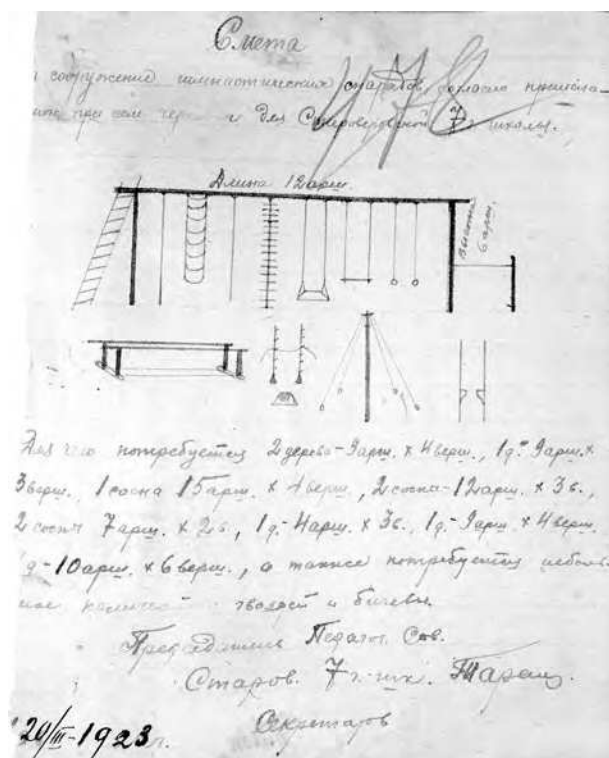 Смета
сооружение гимнастических снарядов согласно приложа-
при сем чер и для Старовер школы.
Длина 12 арш.
высота
6 арш.
Для чего потребуется 2 дерево-9 арш. х 4 верш., 1 д.- 9 арш. х
3 верш., 1 сосна 15 арш. х 4 верш., 2 сосны-12 арш. х 3 в.,
2 сосны 7 арш. х 2 в., 1 д.-4 арш. х 3 в., 1 д.-9 арш. х 4 верш.
д-10 арш. х 6 верш., а также потребуется неболь-
шое гвоздей и бичевы.
Председатель Педагог. Сов.
Старов. 7 г. шк.
Секретарь
20/III-1923 г.